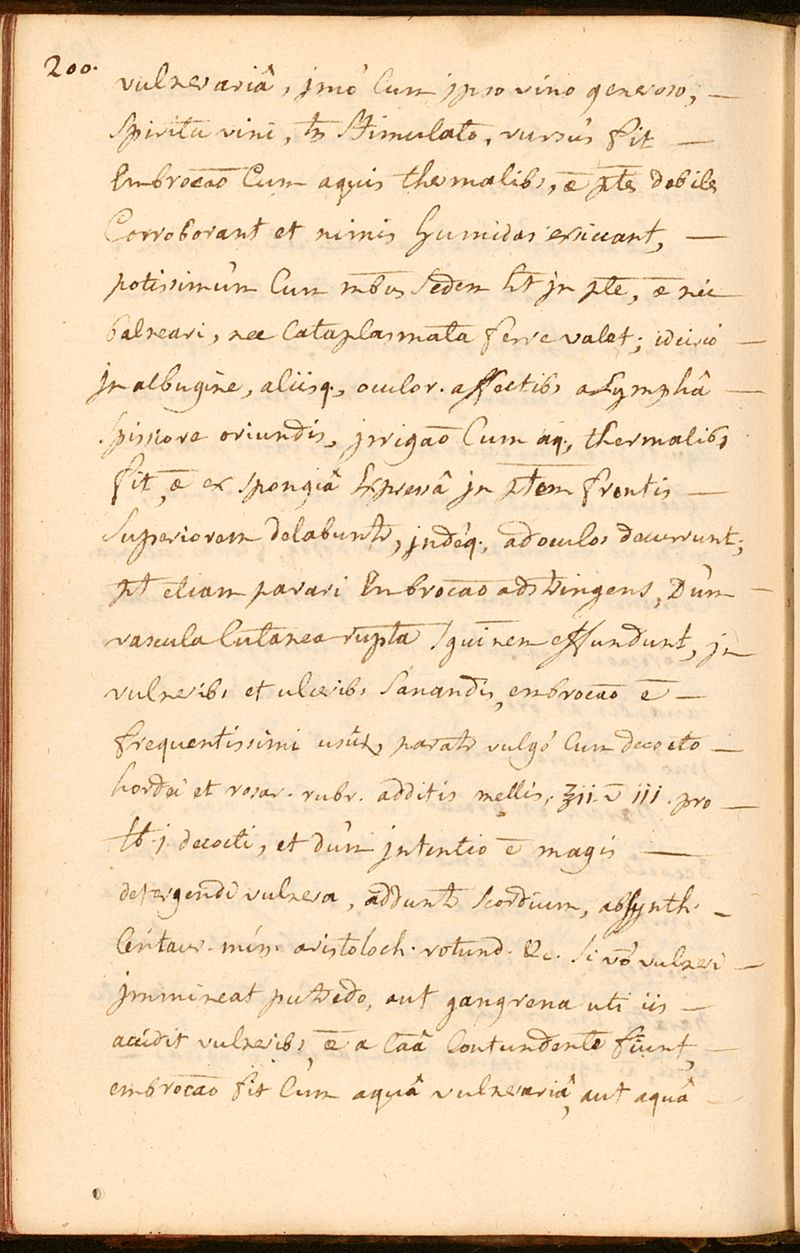 200.
vulnerariâ, jmo Cum jpso vino generosò, —
Spiritu vini, tr Stimulato, rursùs fit —
Embrocāo Cum aquis thermalibs, æ ptes debiles
Corroborant et nimis humidas exsiccant, —
potissimùm Cum mbus Sedem ht jn pte, æ nec
balneari, nec Cataplasmata ferre valet; idcircò —
jn albugine, aliisq, oculor. affectibs a Lymphâ —
Spissiore oriundis, jrrigāo Cum aq, thermalibs
fit, æ ex spongiâ Expressâ jn ptem frontis —
Superiorem delabuntr, jndéq, ad oculos decurrunt;
pt etiam parari Embrocāo adstringens, Dùm —
vascula Cutanea rupta Sguinem effundunt, jn
vulneribs et ulceribs Sanandis, embrocāo ē —
frequentissimi usûs, paratr vulgò Cum decocto —
hordei et rosar. rubr. additis mellis, ℥ii. v̄ iii. pro —
lb j. decocti, et dùm jntentio ē magis —
detergendi vulnera, adduntr Scordium, absynth. —
Centaur. min. aristoloch. rotund. &c. Si vō vulneri —
jmmineat putredo, aut gangrena uti iis —
accidit vulneribs, æ a Caâ Contundente fiunt, —
embrocāo fit Cùm aquâ vulnerariâ, aut aquâ —